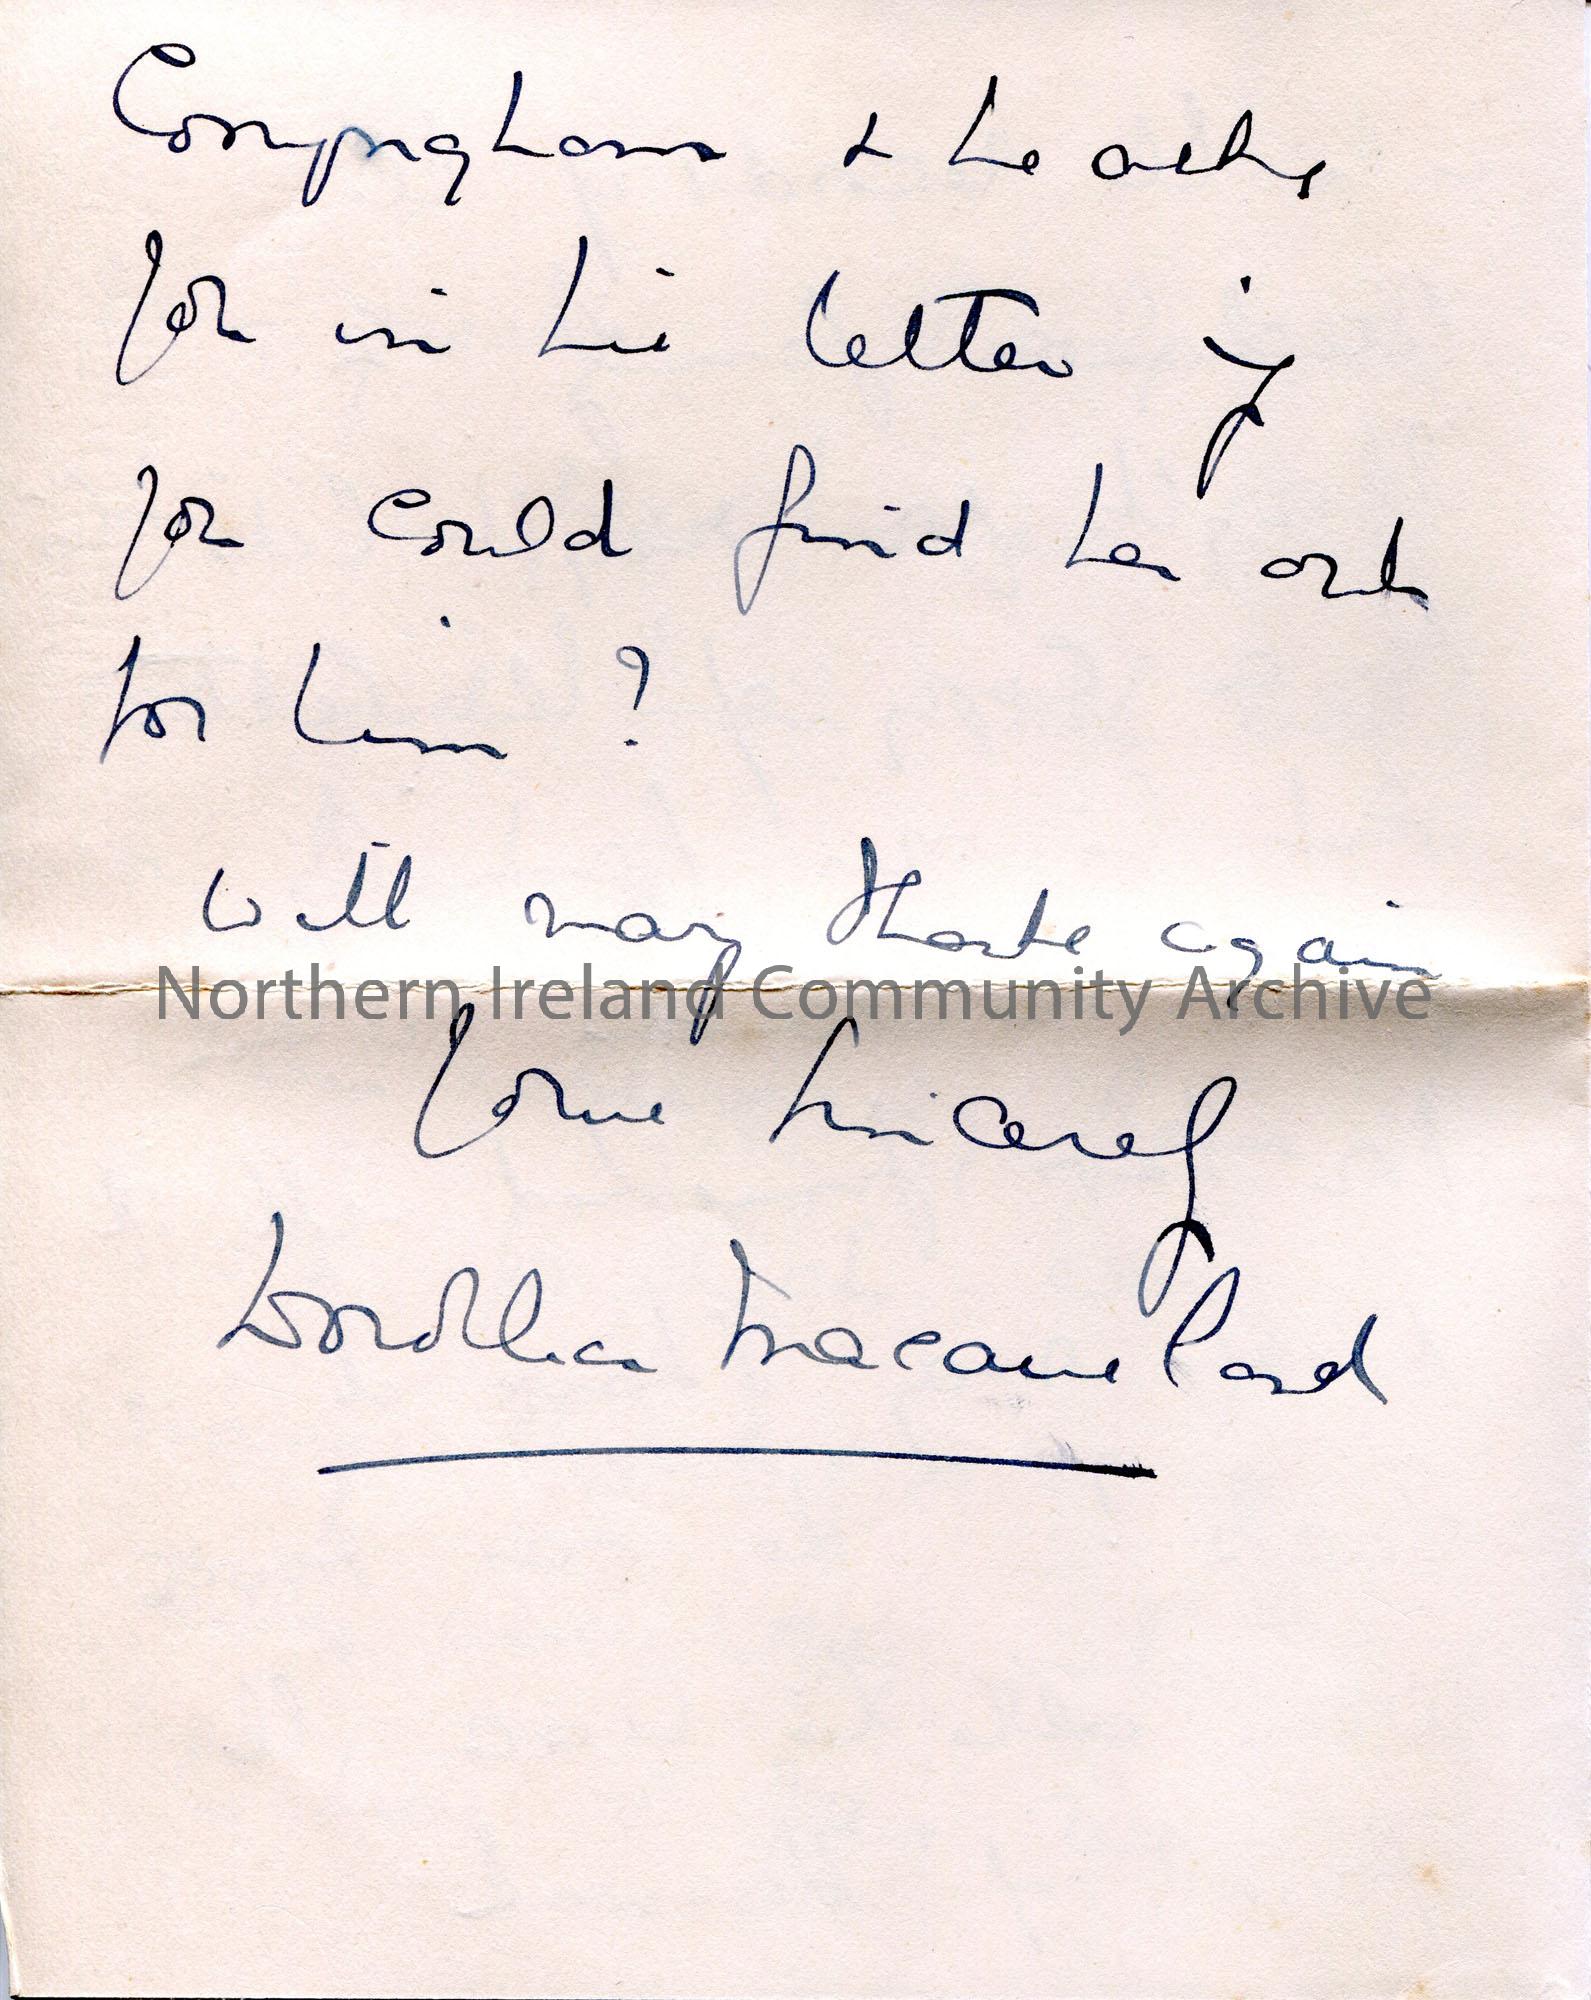 Conyngham & he asks
you in his letter if
you could find her out
for him?
With many thanks again
Northern Ireland Community Archive
Yours sincerely
Dorothea Macausland